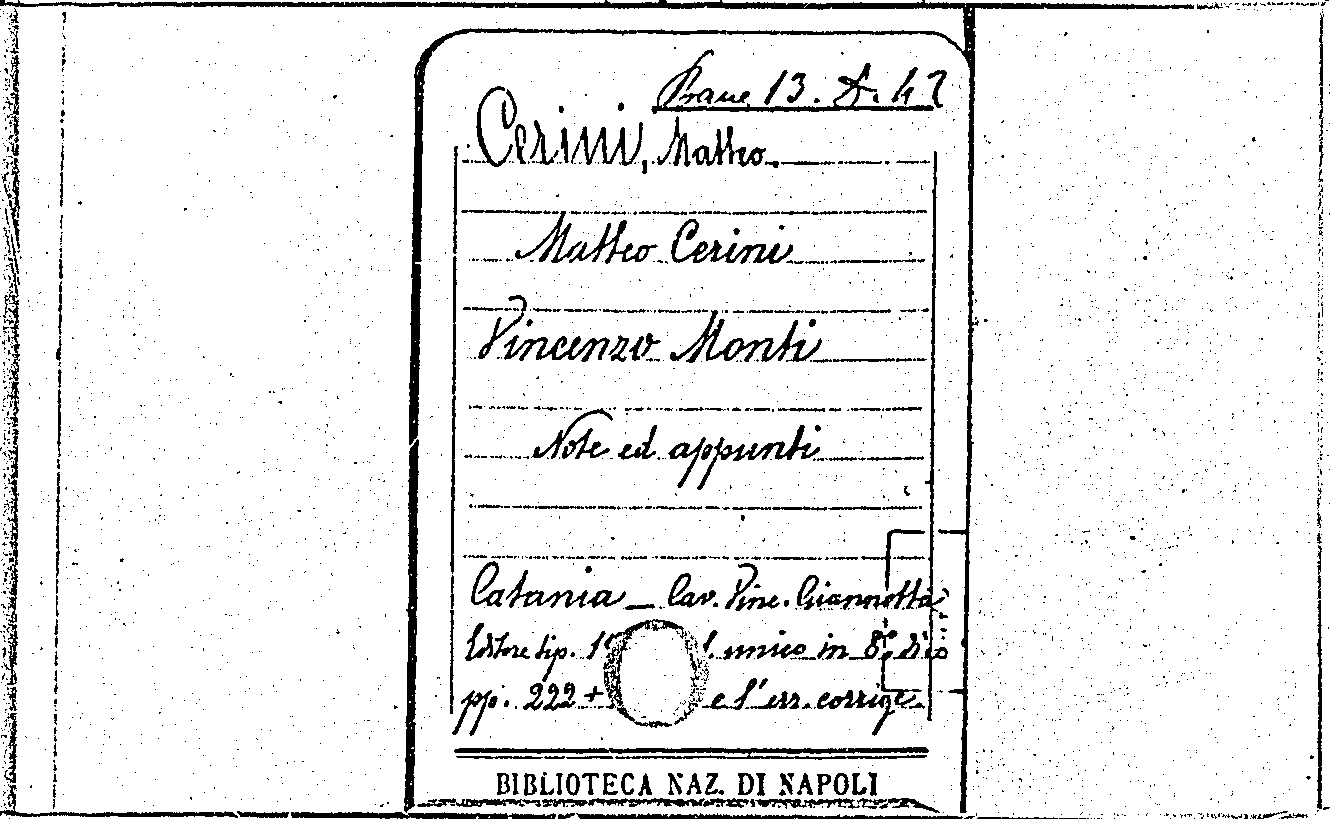 Branc. 13. D. 47
Cerini, Matteo.
Matteo Cerini
Vincenzo Monti
Note ed appunti
Catania _ Cav. Vinc. Giannotta
Editore tip. unico in 8.° di
pp. 222 + e l'err. corrige.
BIBLIOTECA NAZ. DI NAPOLI